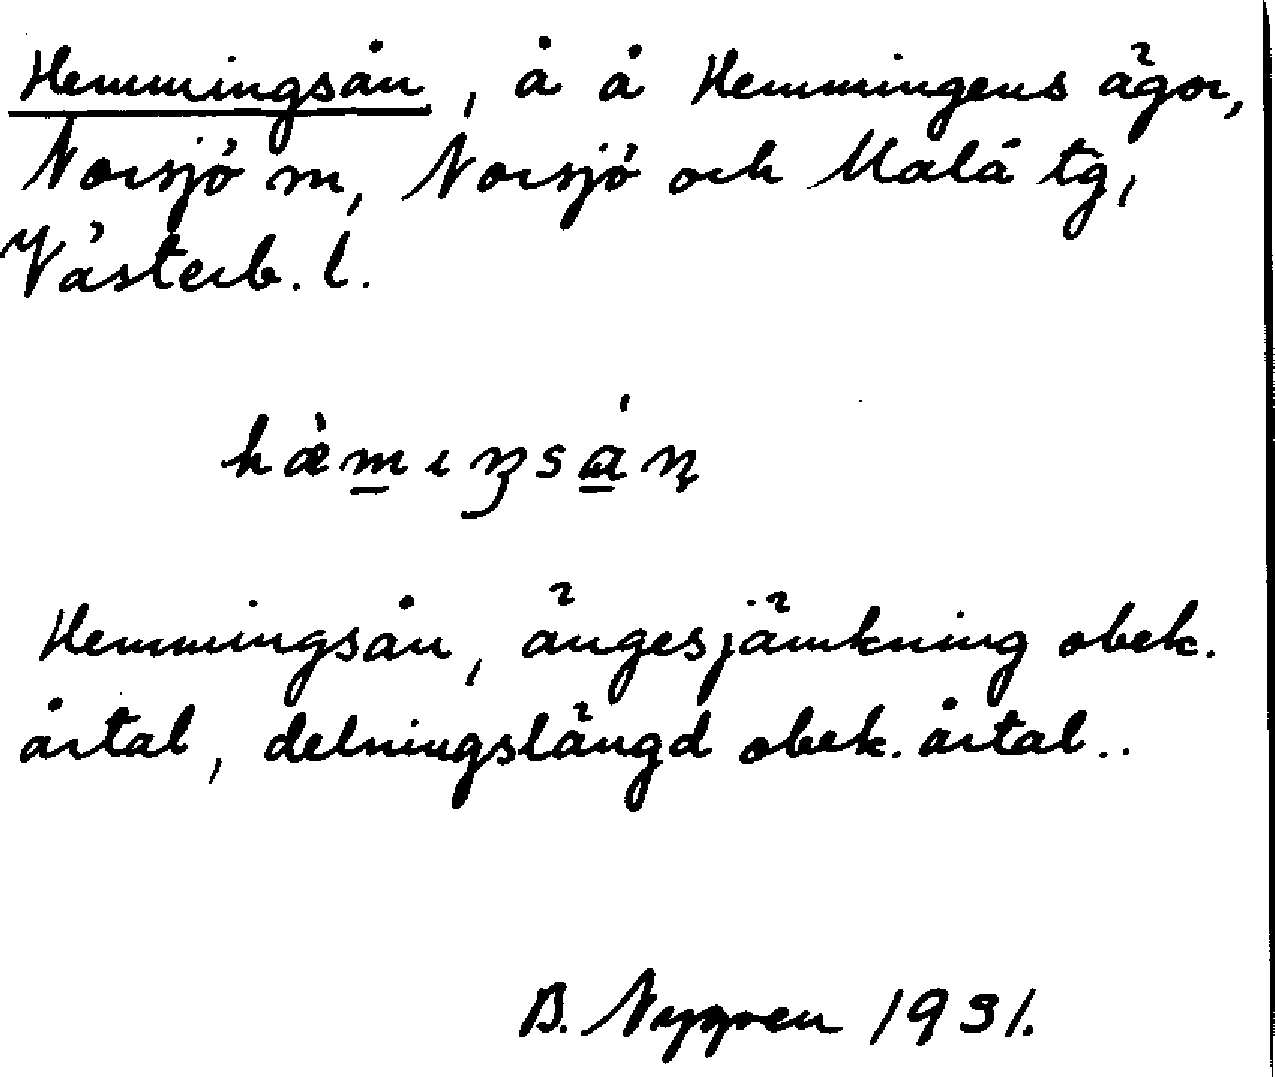 Hemmingsån, å å Hemmingens ägor,
Norsjö sn, Norsjö och Malå tg,
Västerb. l.
hæ̀m̲ıŋsǻ̲n
Hemmingsån, ängesjämkning obek.
årtal, delningslängd obek. årtal..
B. Nygren 1931.